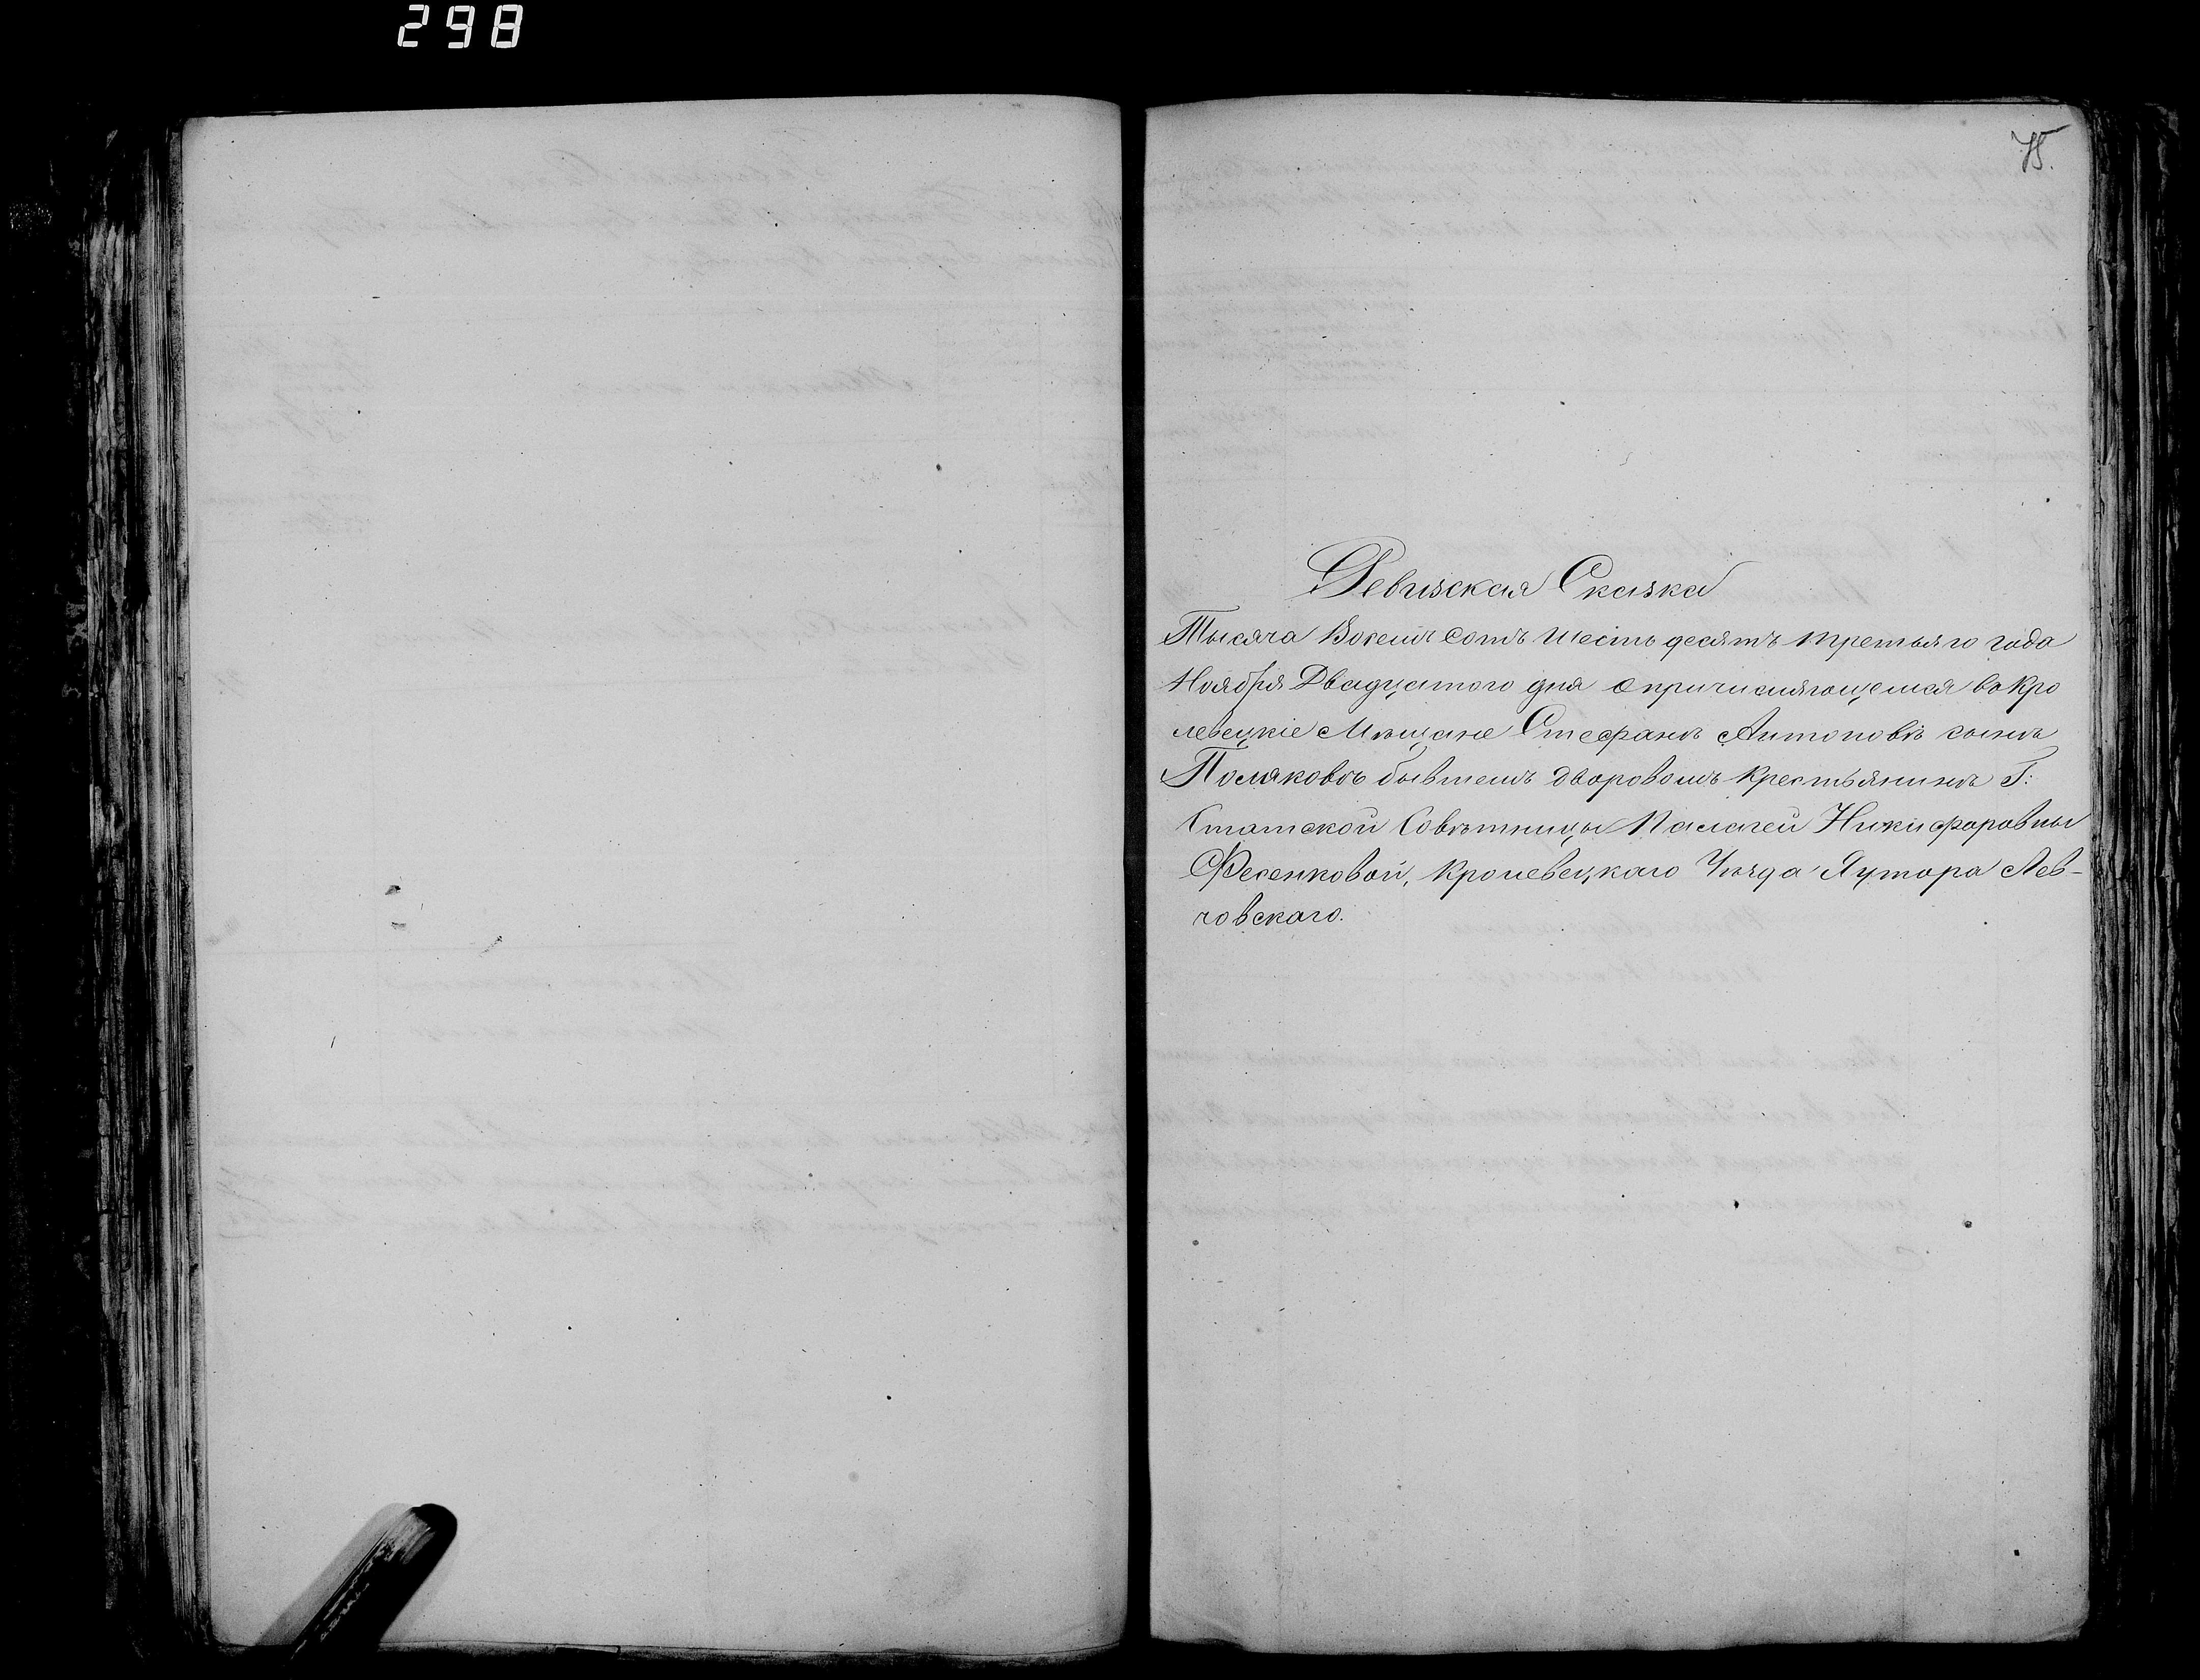 298
75.
Ревизская Сказка
Тысяча Восемь сотъ шесть десятъ третьяго года
Ноября Двадцатого дня о причисляющемся в Кро
левецкіе Мѣщане Стефанъ Антоновъ сынъ
Поляковъ бывшемъ дворовомъ крестьянинѣ Г:
Статской Совѣтницы Палагеи Никифоровны
Фесенковой, Кролевецкаго Уѣзда Хутора Лев-
човскаго.